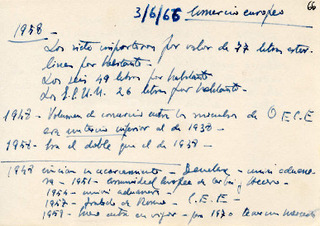 3/6/66 Comercio europeo
66
1958 -
Los siete importaron por valor de 77 libras ester-
linas por habitante.
Los seis 49 libras por habitante
Los E.E.U.U. 26 libras por habitante.
1947 - Volumen de comercio entre los miembros de O E C E
era un tercio inferior al de 1938 -
1957 - Era el doble que el de 1947 -
1947 inician un acercamiento - Benelux - unión aduane-
ra - 1951 - Comunidad Europea de Carbón, Acero -
1956 - unión aduanera -
1957 - Tratado de Roma - C. E. E -
1959 - entra en vigor - para 1970 un mercado